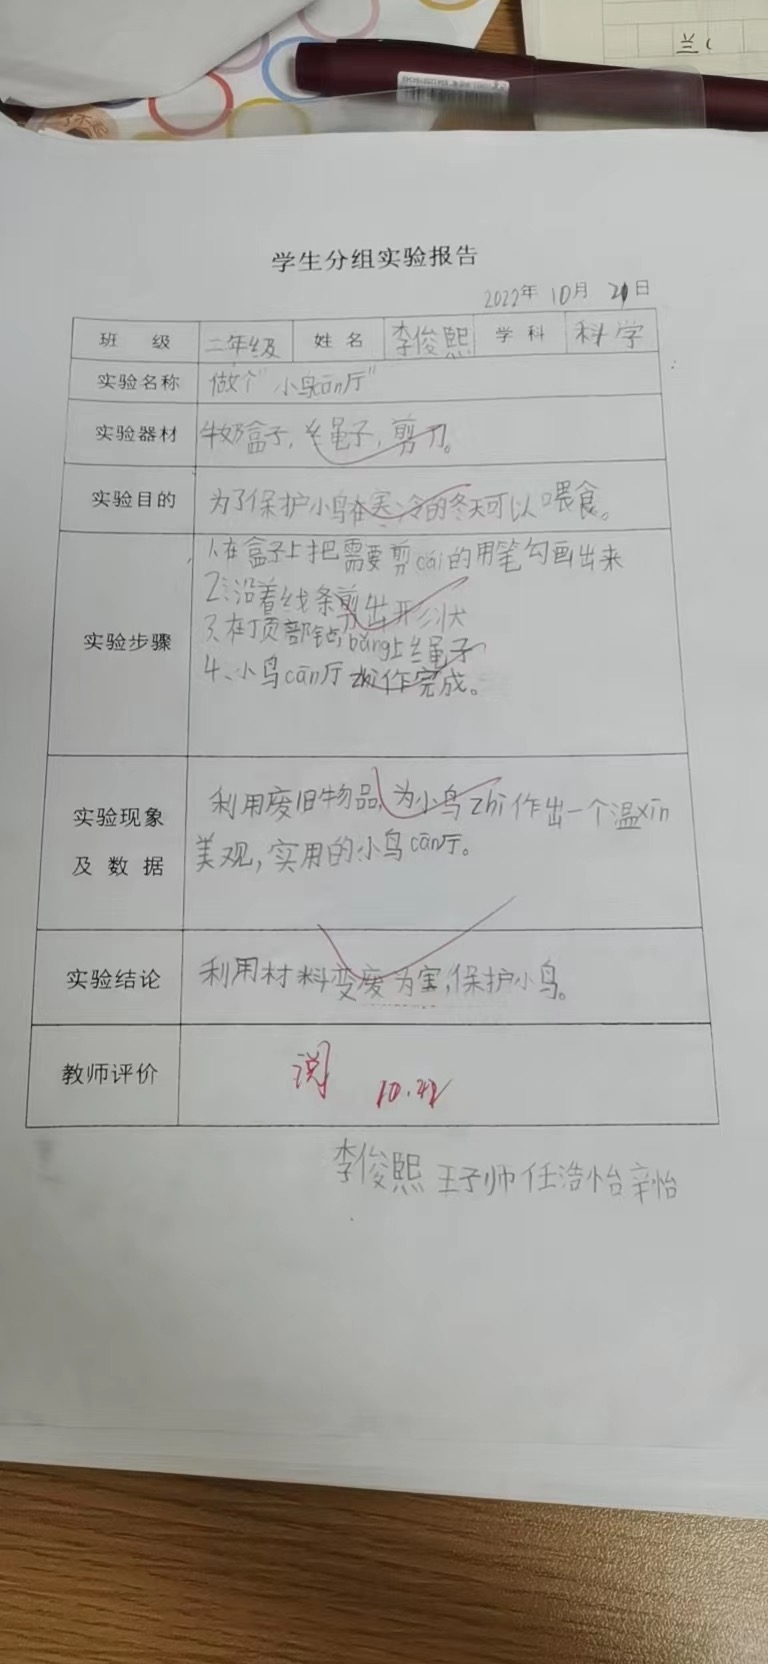 兰
学生分组实验报告
2022年 10月 21日
班 级 二年级 姓 名 李俊熙 学 科 科学
实验名称 做个"小鸟cān厅"
实验器材 牛奶盒子,丝绳子,剪刀。
实验目的 为了保护小鸟在寒冷的冬天可以喂食。
1.在盒子上把需要剪cái的用笔勾画出来
2.沿着线条剪出形状
3.在顶部钻bǎng上丝绳子
实验步骤
4、小鸟cān厅zhì作完成。
实验现象 利用废旧物品,为小鸟zhì作出一个温xīn
及 数 据 美观,实用的小鸟cān厅。
实验结论 利用材料变废为宝,保护小鸟。
教师评价 阅 10.21
李俊熙 王子帅 任浩怡 辛怡